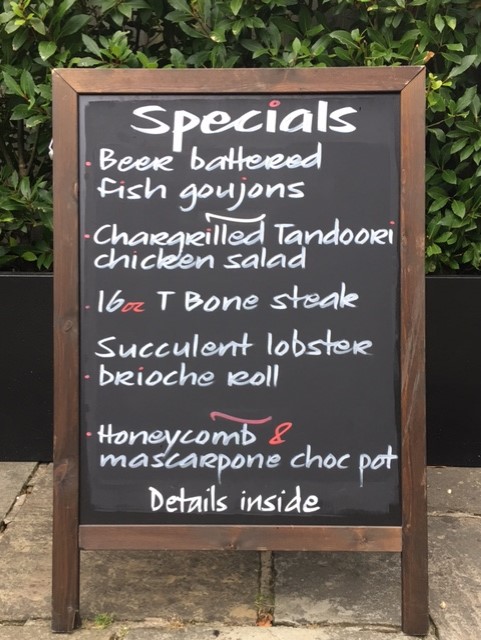 Specials
Beer battered
fish goujons
Chargrilled Tandoori
chicken salad
16oz T Bone steak
Succulent lobster
brioche roll
Honeycomb &
mascarpone choc pot
Details inside